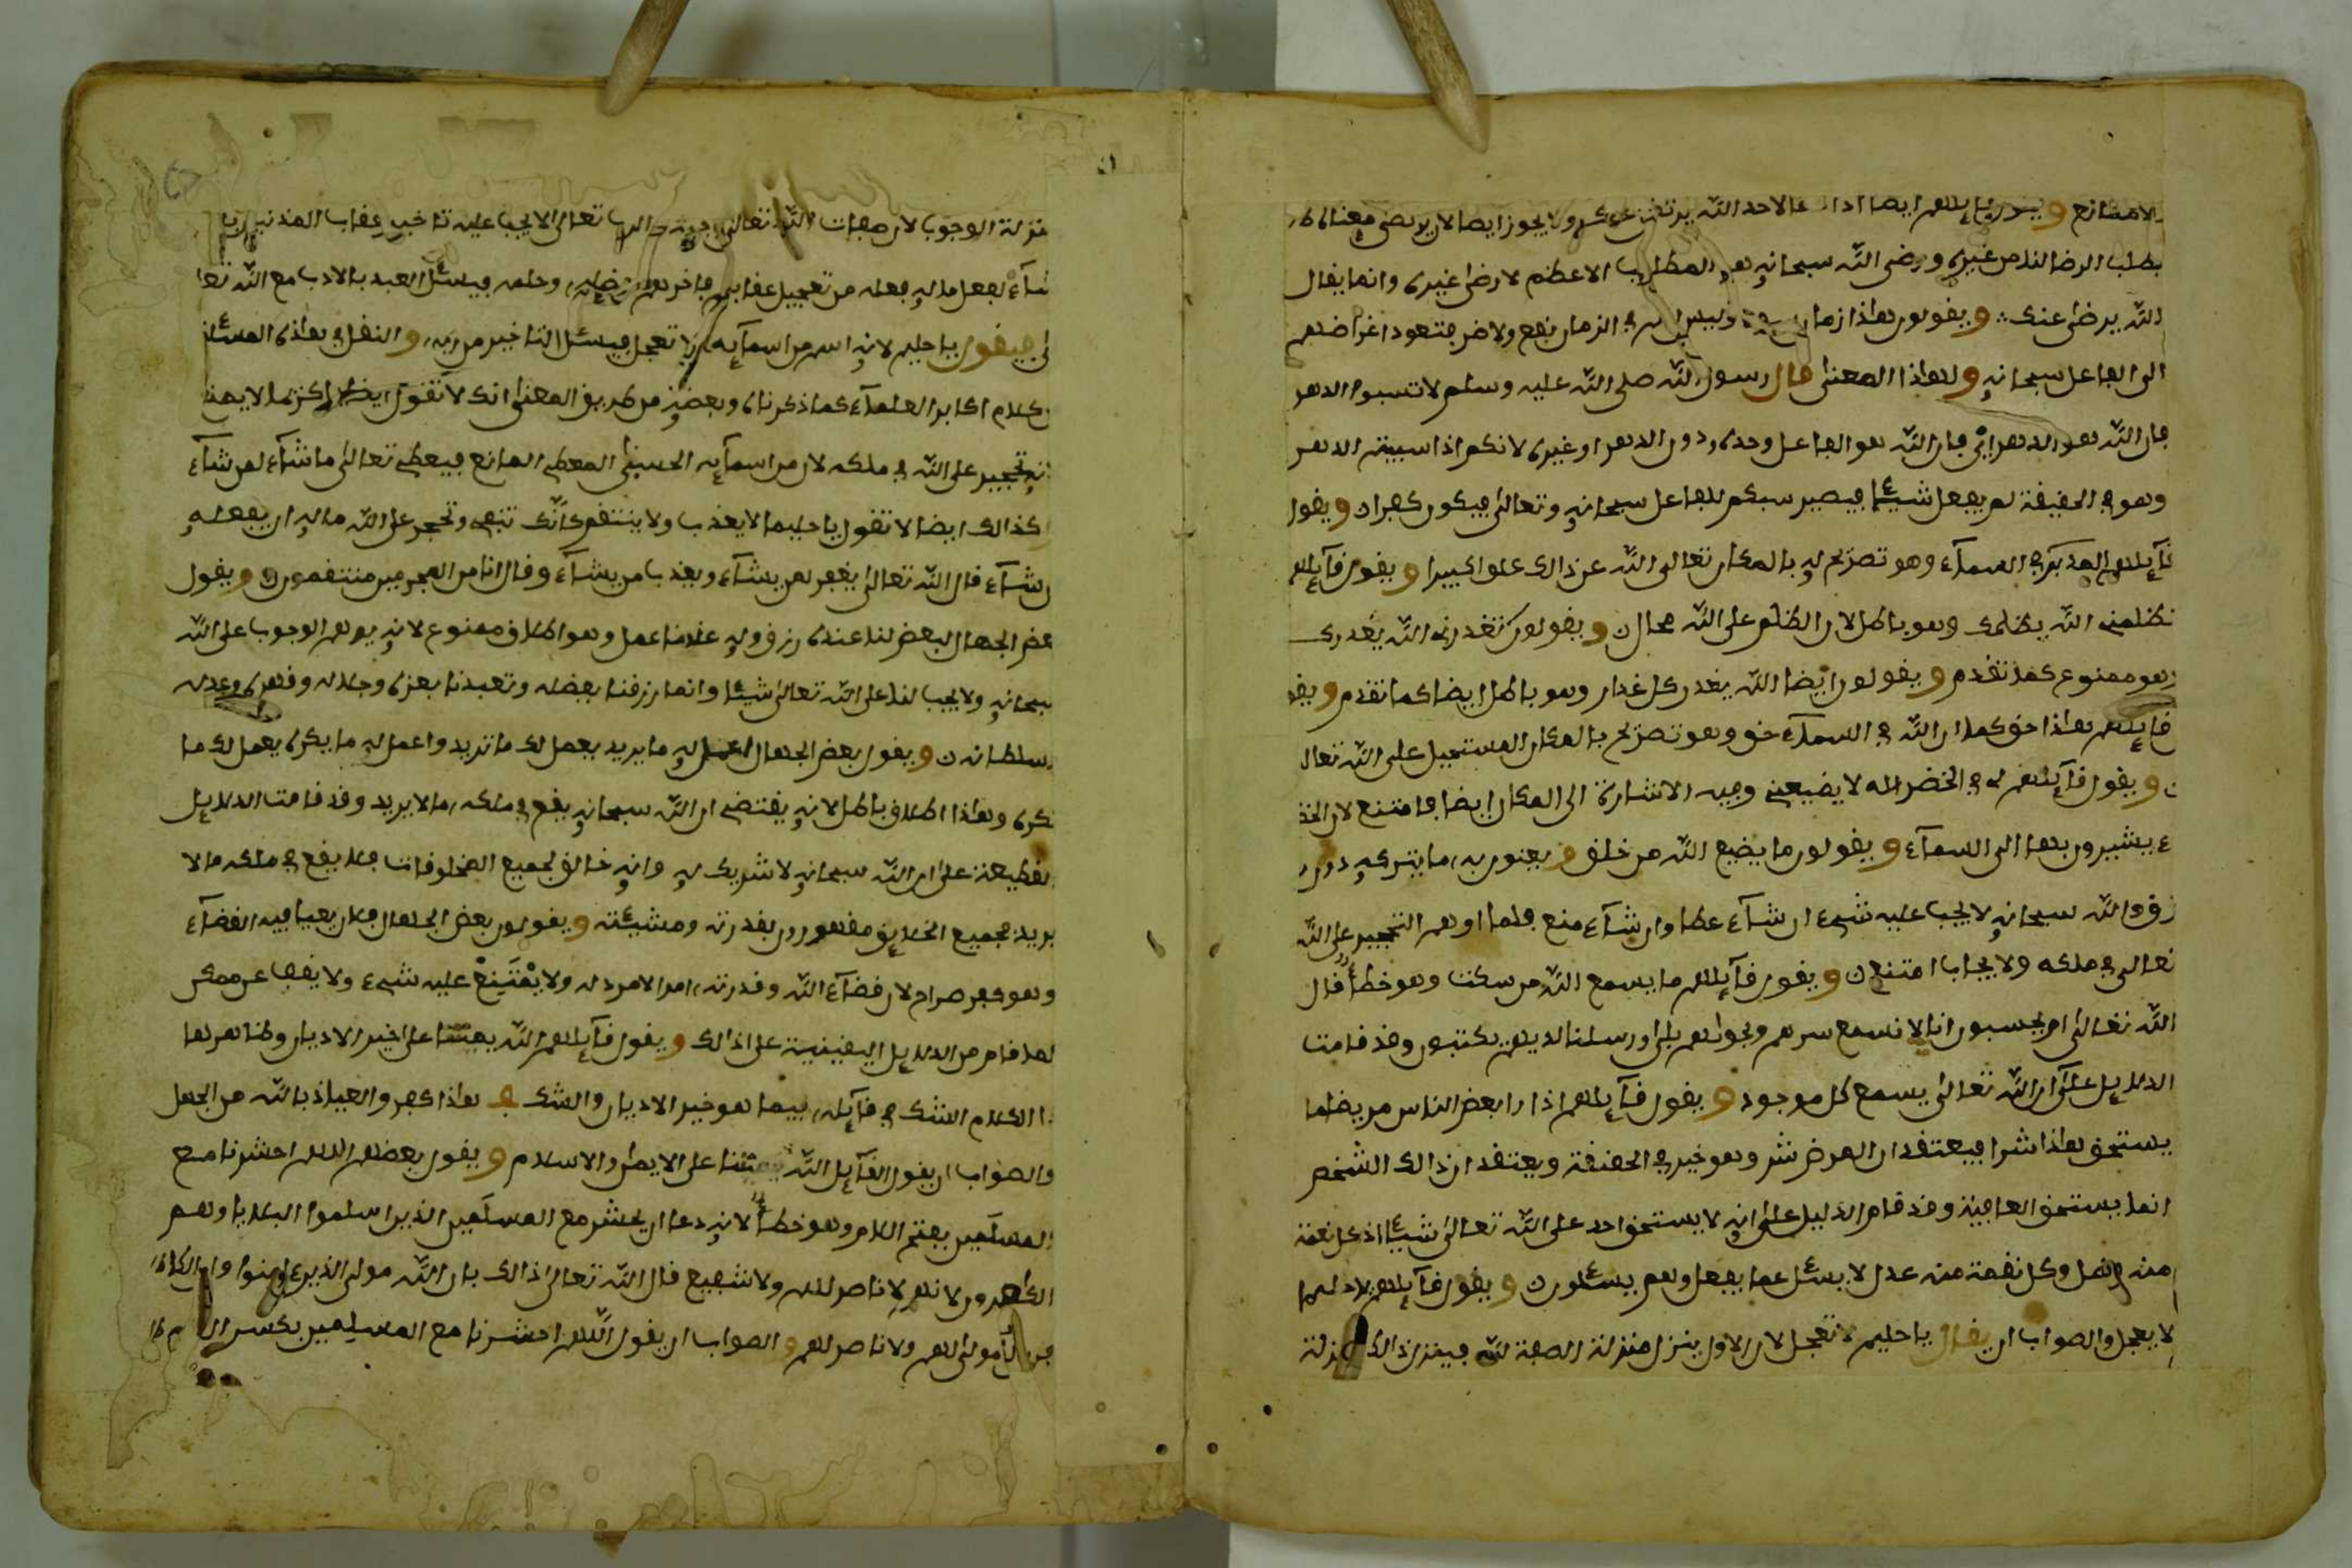 ويقول قائلهم ايضا اذا الاحد الله يرتضى عنكم ولا يجوز ايضا لان يرتضى معناه
يطلب الرضا لنا من غيره ورضى الله سبحانه هو المطلب الاعظم لا رضى غيره وانما يقال
الله يرضى عنك ويقولون هاذا زمان وليس في الزمان نفع ولا ضر فتعود اغراضهم
الى الفاعل سبحانه ولهاذا المعنى قال رسول الله صلى الله عليه وسلم لا تسبوا الدهر
فان الله هو الدهر اي فان الله هو الفاعل وحده دون الدهر او غيره لانكم اذا سببتم الدهر
وهو في الحقيقة لم يفعل شيئا فيصير سبكم للفاعل سبحانه وتعالى فيكون كفران ويقول
قائلهم المدبر في السماء وهو تصريح له بالمكان تعالى الله عن ذالك علوا كبيرا ويقول قائلهم
تظلمني الله يظلمك وهو باطل لان الظلم على الله محال ويقولون تغدرني الله يغدرك
وهو ممنوع كما تقدم ويقولون ايضا الله يغدر كل غدار وهو باطل ايضا كما تقدم ويقو
قائلهم هاذا حق كما ان الله في السماء حق وهو تصريح بالمكان المستحيل على الله تعالى
ويقول قائلهم في الخضر الله لا يضيعني وفيه الاشارة الى المكان ايضا فامتنع لان الخض
يشيرون بها الى السماء ويقولون ما يضيع الله من خلق ويعنون به ما يتركه دون
رزق والله سبحانه لا يجب عليه شيء ان شاء عطا وان شاء منع فلما اوهم التحجير على الله
تعالى في ملكه ولا يجاب امتنع ويقول قائلهم ما يسمع الله من سكت وهو خطأ قال
الله تعالى ام يحسبون انا لا نسمع سرهم ونجواهم بلى ورسلنا لديهم يكتبون وقد قامت
الدلايل على ان الله تعالى يسمع كل موجود ويقول قائلهم اذا را بعض الناس مريضا ما
يستحق هاذا شرا فيعتقد ان المرض شر وهو خير في الحقيقة ويعتقد ان ذالك الشخص
انما يستحق العافية وقد قام الدليل على انه لا يستحق احد على الله تعالى شيئا اذ كل نعمة
منه فضل وكل نقمة منه عدل لا يسئل عما يفعل وهم يسئلون ويقول قائلهم يا حليما
لا يعجل والصواب ان يقال يا حليم لا تعجل لان الاول ينزل منزلة الصفة لله فينزل ذالك منزلة
منزلة الوجوب لان صفات الله تعالى واجبة والرب تعالى لا يجب عليه تاخير عقاب المذنبين
شاء لفعل ما له فعله من تعجيل عقابهم فاخر بفضله وحلمه فيسئل العبد بالادب مع الله تعا
لى فيقول يا حليم لانه اسم من اسمائه لا تعجل فيسئل التاخير من ربه والنقل في هاذه المسئلة
كلام اكابر العلماء كما ذكرناه وبعضه من طريق المعنى انك لا تقول ايضا يا كريما لا يمنع
انه تحجير على الله في ملكه لان من اسمائه الحسنى المعطي المانع فيعطي تعالى ما شاء لمن شاء
كذالك ايضا لا تقول يا حليما لا يعذب ولا ينتقم كانك تنهى وتحجر على الله ما له ان يفعله
ان شاء قال الله تعالى يغفر لمن يشاء ويعذب من يشاء وقال انا من المجرمين منتقمون ويقول
بعض الجهال البعض لنا عنده رزق وله علينا عمل وهو اطلاق ممنوع لانه يوهم الوجوب على الله
سبحانه ولا يجب لنا على الله تعالى شيئا وانما رزقنا بفضله وتعبدنا بعزه وجلاله وقهره وعدله
وسلطانه ويقول بعض الجهال اعمل له ما يريد يعمل لك ما تريد واعمل له ما يكره يعمل لك ما
تكره وهاذا اطلاق باطل لانه يقتضي ان الله سبحانه يقع في ملكه ما لا يريد وقد قامت الدلايل
القطيعة على ان الله سبحانه لا شريك له وانه خالق لجميع المخلوقات فلا يقع في ملكه ما لا
يريد فجميع الخلايق مقهورون بقدرته ومشيئته ويقولون بعض الجهال فلان يعيا فيه القضاء
وهو كفر صراح لان قضاء الله وقدرته امرا لا مرد له ولا يمتنع عليه شيء ولا يقف عن ممكن
لما قام من الدلايل اليقينية على ذالك ويقول قائلهم الله يميتنا على خير الاديان وظاهر هاذا
الكلام الشك في قائله فيما هو خير الاديان والشك في هاذا كفر والعياذ بالله من الجهل
والصواب ان يقول القائل الله يميتنا على الايمان والاسلام ويقول بعضهم اللهم احشرنا مع
المسلمين بفتح اللام وهو خطأ لانه دعا ان يحشر مع المسلمين الذين اسلموا البلايا وهم
الكافرون لانهم لا ناصر لهم ولا شفيع قال الله تعالى ذالك بان الله مولى الذين ءامنوا وان الكا
فرين لا مولى لهم ولا ناصر لهم والصواب ان يقول اللهم احشرنا مع المسلمين بكسر اللام